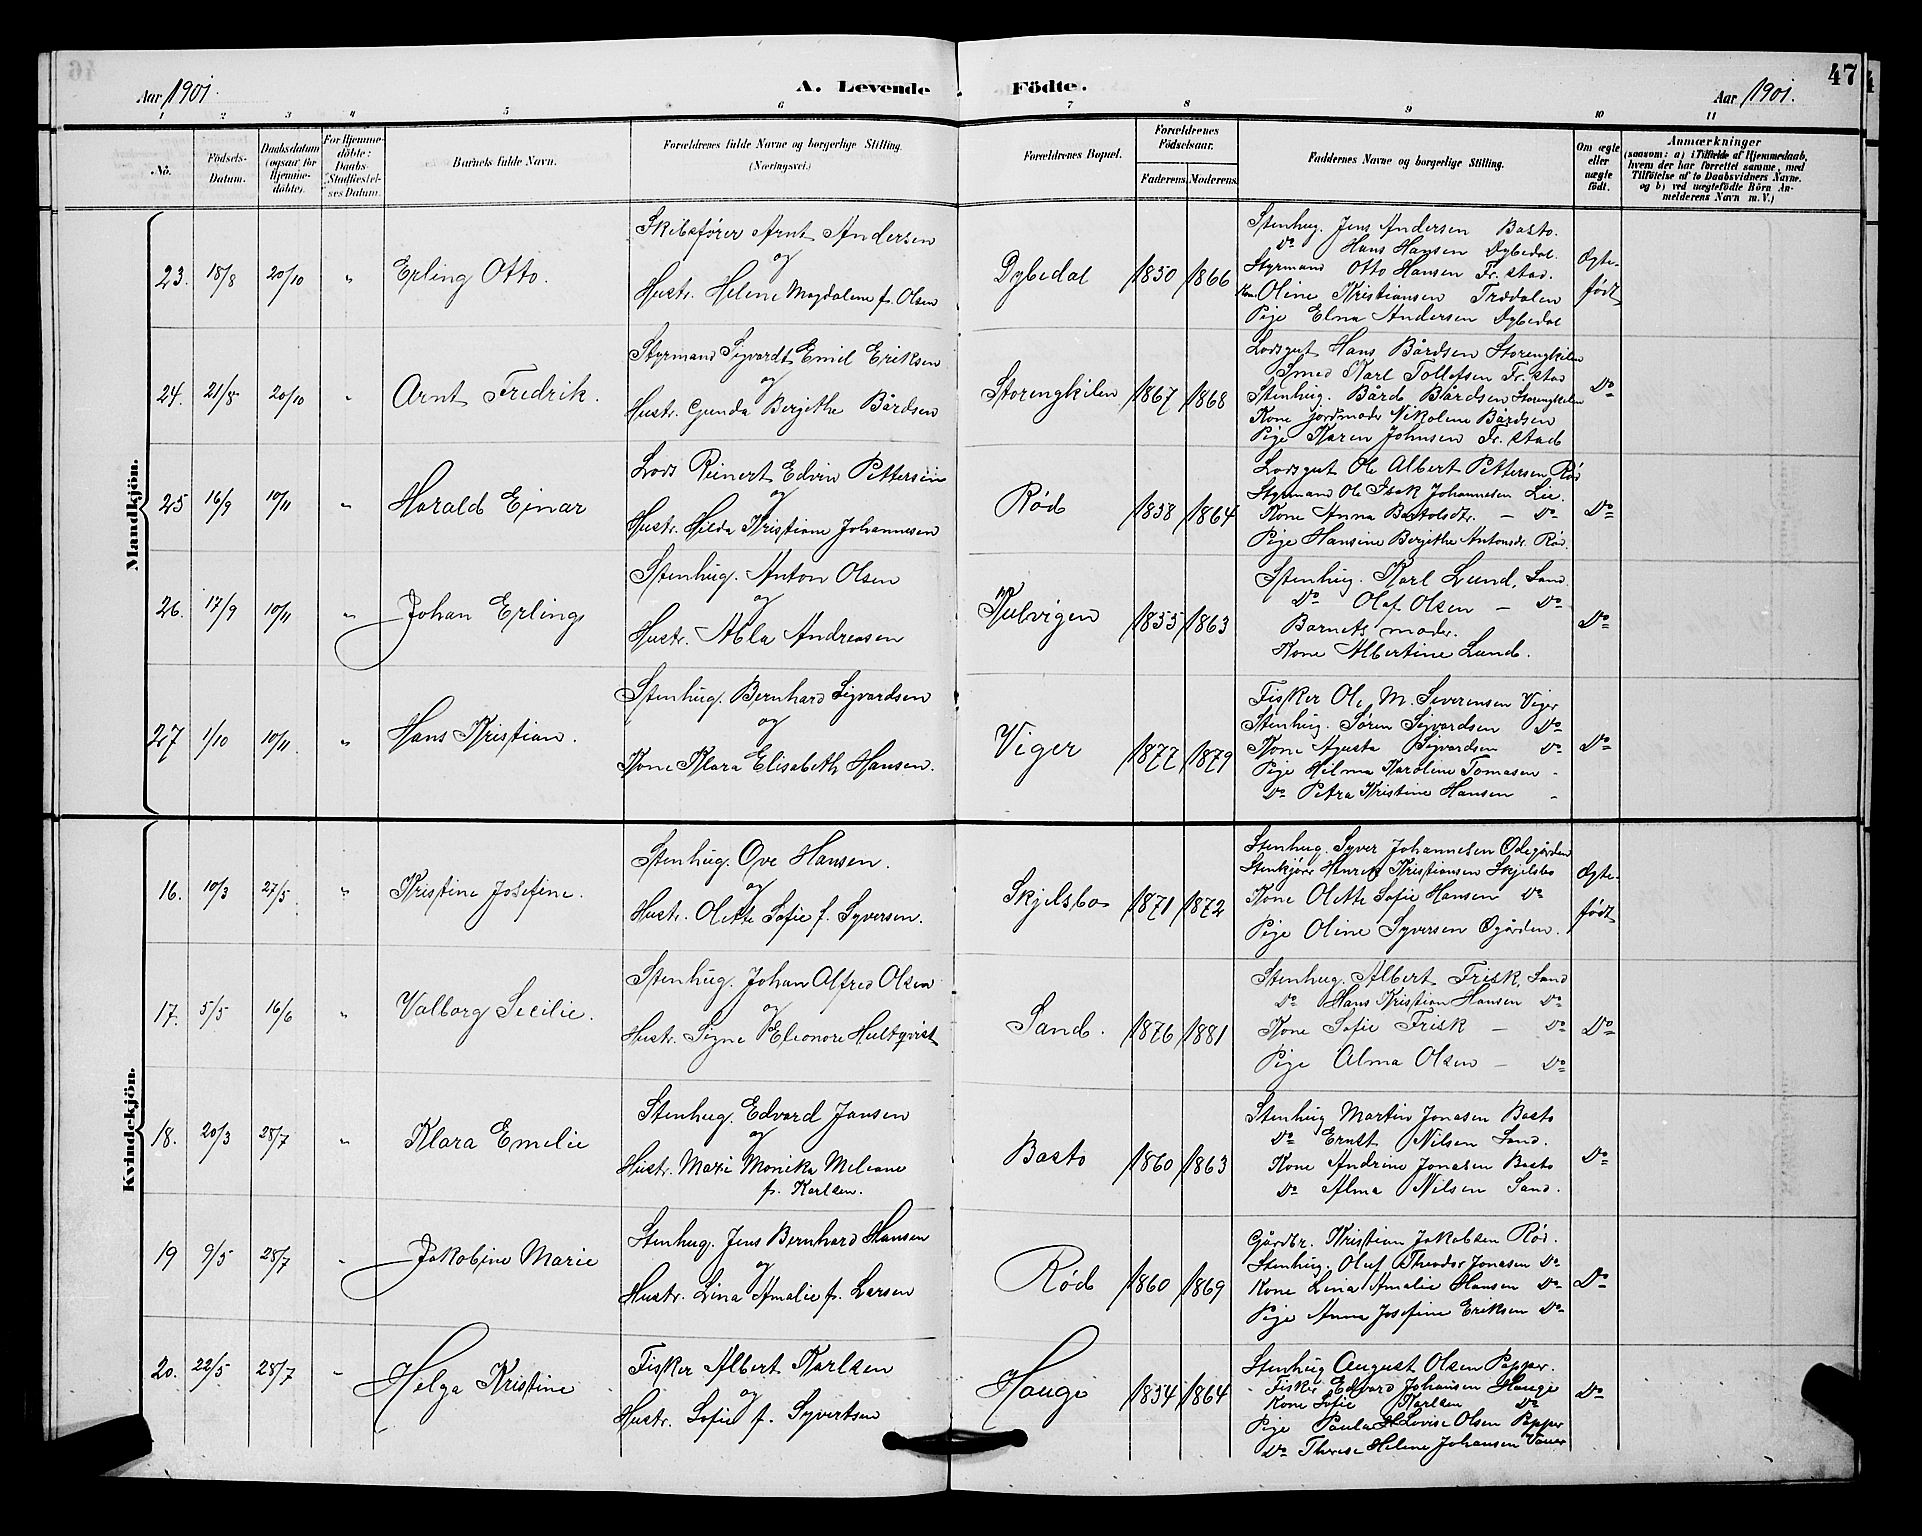 Aar 1901.
A. Levende Födte.
Aar 1901.
47
1 2 3 4 5 6 7 8 9 10 11
No.
Födsels-Datum.
Daabsdatum (ogsaa for Hjemmedöbte).
For Hjemmedöbte: Daabs-Stadfæstelses Datum.
Barnets fulde Navn.
Forældrenes fulde Navne og borgerlige Stilling. (Næringsvei.)
Forældrenes Bopæl.
Forældrenes Födselsaar.
Faderens. Moderens.
Faddernes Navne og borgerlige Stilling.
Om ægte eller uægte födt.
Anmærkninger
(saasom: a) i Tilfælde af Hjemmedaab,
hvem der har forrettet samme, med
Tilföielse af to Daabsvidners Navne.
og b) ved uægtefödte Börn An-
melderens Navn m. V.)
Mandkjön.
23. 18/8 20/10 " Erling Otto.
Skibsfører Arnt Andersen
og
Hustr. Helene Magdalene f. Olsen
Dybedal 1850 1866
Stenhug. Jens Andersen Basto.
Do Hans Hansen Dybedal.
Styrmand Otto Hansen Fr. stad.
Kone Oline Kristiansen Trædalen
Pige Elna Andersen Dybedal
Ægte-født
24. 21/8 20/10 " Arnt Fredrik.
Styrmand Sigvardt Emil Eriksen
og
Hustr. Gunda Berjethe Bårdsen
Storengkilen 1867 1868
Lodsgut Hans Bårdsen Storengkilen
Smed Karl Tollefsen Fr. stad
Stenhug. Bård Bårdsen Storengkilen
Kone jordmoder Nikoline Bårdsen
Pige Karen Johnsen Fr. stad
Do
25 16/9 10/11 " Harald Ejnar
Lods Reinert Edvin Pettersen
og
Hustr. Hilda Kristiane Johannesen
Rød 1858 1864
Lodsgut Ole Albert Pettersen Rød
Styrmand Ole Isak Johannesen Lie.
Kone Anna Bartolsdtr. - Do
Pige Hansine Berjethe Antonsdr. Rød.
Do
26. 17/9 10/11 " Johan Erling
Stenhug. Anton Olsen
og
Hustr. Alla Andreasen
Kulvigen 1855 1863
Stenhug. Karl Lund, Sand.
Do Olaf Olsen - Do
Barnets moder.
Kone Albertine Lund.
Do
27 1/10 10/11 " Hans Kristian.
Stenhug. Bernhard Sigvardsen
og
Kone Klara Elisabeth Hansen.
Viger 1877 1879
Fisker Ole M. Severensen Viger
Stenhug. Søren Sigvardsen Do
Kone Agusta Sigvardsen Do
Pige Hilma Karoline Tomasen -
Do Petra Kristine Hansen -
Do
Kvindekjön.
16. 10/3 27/5 " Kristine Josefine.
Stenhug. Ove Hansen.
og
Hustr. Olette Sofie f. Syversen.
Skjelsbo 1871 1872
Stenhug. Syver Johannesen Ødegården
Stenkjører Henrik Kristiansen Skjelsbo
Kone Olette Sofie Hansen Do
Pige Oline Syversen Øgården.
Ægte-født
17. 5/5 16/6 " Valborg Secilie.
Stenhug. Johan Alfred Olsen
og
Hustr. Signe Eleonore Hultqvist
Sand. 1876 1881
Stenhug. Albert Frisk, Sand
Do Hans Kristian Hansen Do
Kone Sofie Frisk - Do
Pige Alma Olsen - Do
Do
18. 20/3 28/7 " Klara Emelie
Stenhug. Edvard Jansen
og
Hustr. Mari Monika Meleane
f. Karlsen.
Basto 1860 1863
Stenhug Martin Jonasen Basto
Do Ernst Nilsen Sand.
Kone Andrine Jonasen Basto
Do Alma Nilsen Sand.
Do
19 9/5 28/7 " Jakobine Marie
Stenhug. Jens Bernhard Hansen
og
Hustr. Lina Amalie f. Larsen
Rød 1860 1869
Gårdbr. Kristian Jakobsen Rød.
Stenhug. Oluf Theodor Jonasen Do
Kone Lina Amalie Hansen Do
Pige Anna Josefine Eriksen Do
Do
20. 22/5 28/7 " Helga Kristine
Fisker Albert Karlsen
og
Hustr. Sofie f. Syvertsen
Hauge 1854 1864
Stenhug August Olsen Papper.
Fisker Edvard Johansen Hauge
Kone Sofie Karlsen Do
Pige Paula Lovise Olsen Papper
Do Therese Helene Johansen Vauer
Do